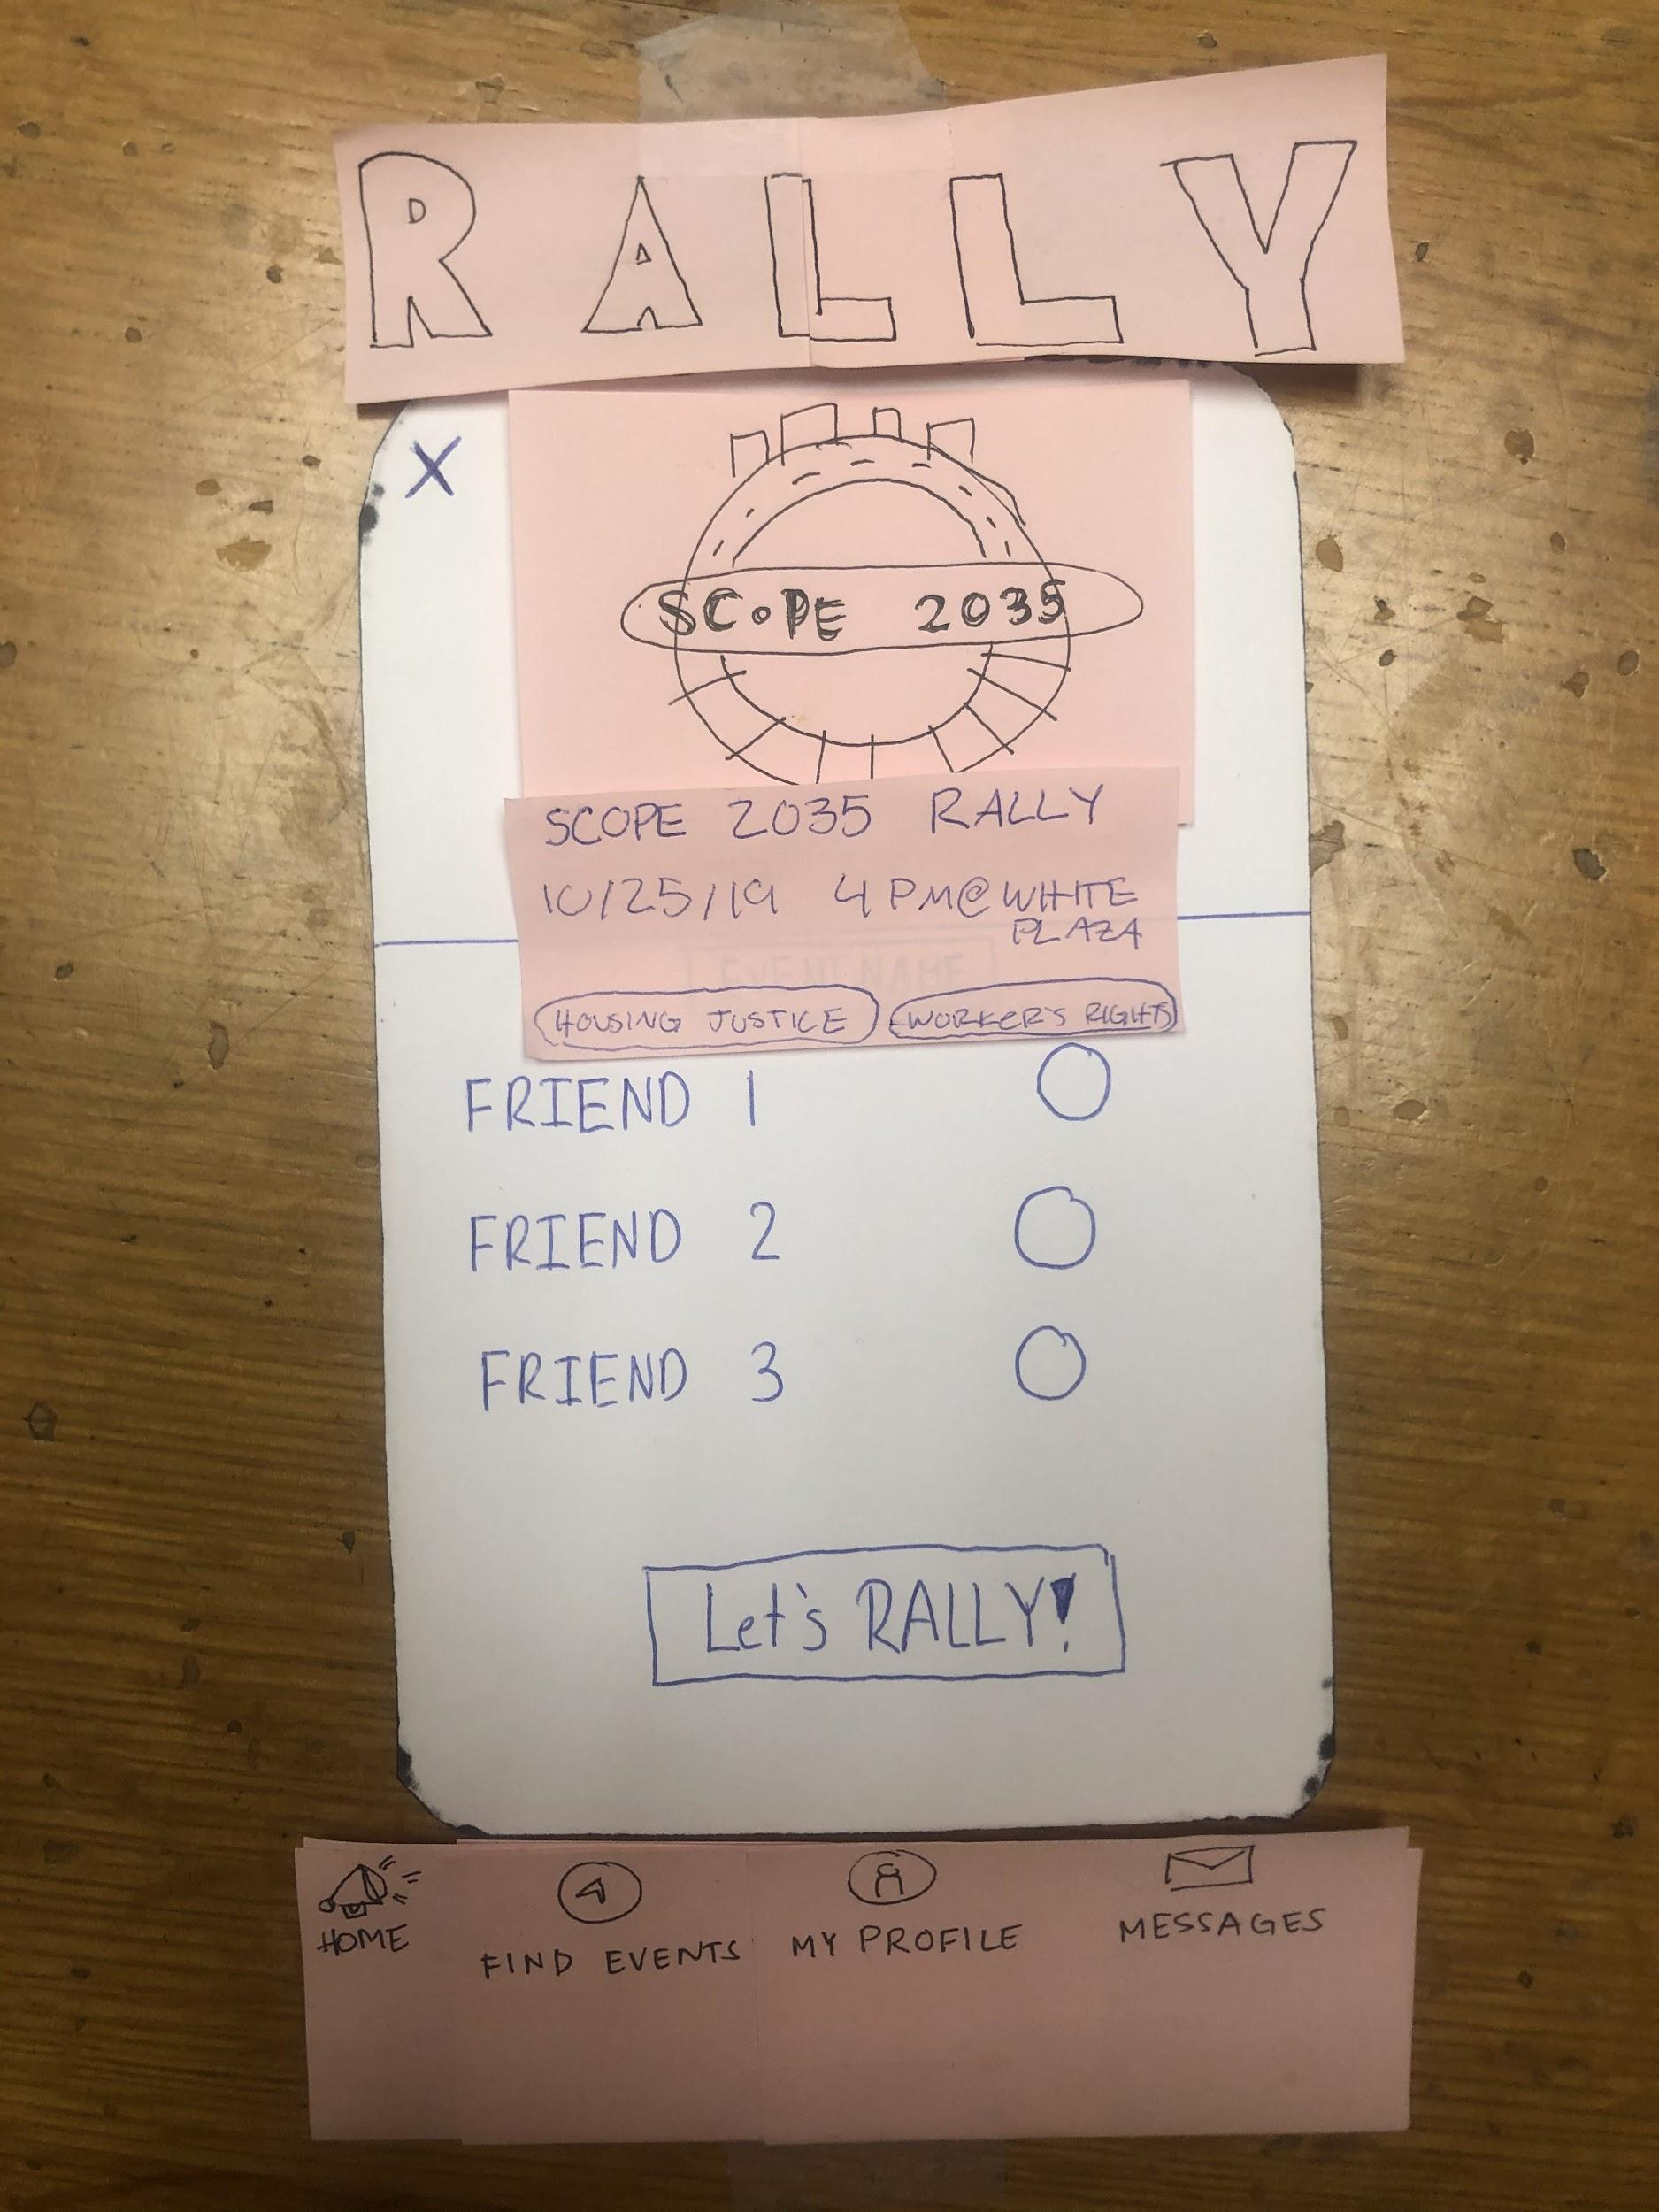 RALLY
X
SCOPE 2035
SCOPE 2035 RALLY
10/25/19 4PM@WHITE
PLAZA
EVENT NAME
HOUSING JUSTICE WORKER'S RIGHTS
FRIEND 1
FRIEND 2
FRIEND 3
Let's RALLY!
HOME FIND EVENTS MY PROFILE MESSAGES